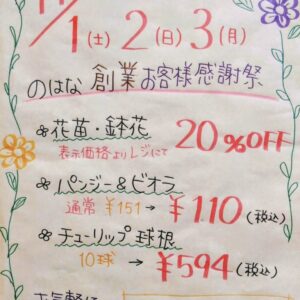 11/1(土) 2(日) 3(月)
のはな 創業お客様感謝祭
花苗・鉢花 20%OFF
表示価格よりレジにて
パンジー&ビオラ
通常 ¥151 → ¥110(税込)
チューリップ球根
10球 → ¥594(税込)
お気軽に